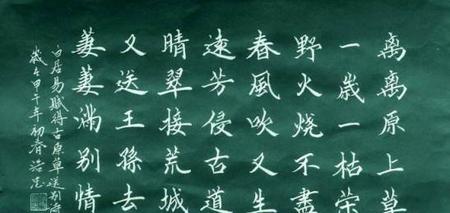 离离原上草
一歲一枯荣
野火烧不盡
春風吹又生
遠芳侵古道
晴翠接荒城
又送王孫去
萋萋滿别情
白居易賦得古原草送别
歲在甲午年初春浩